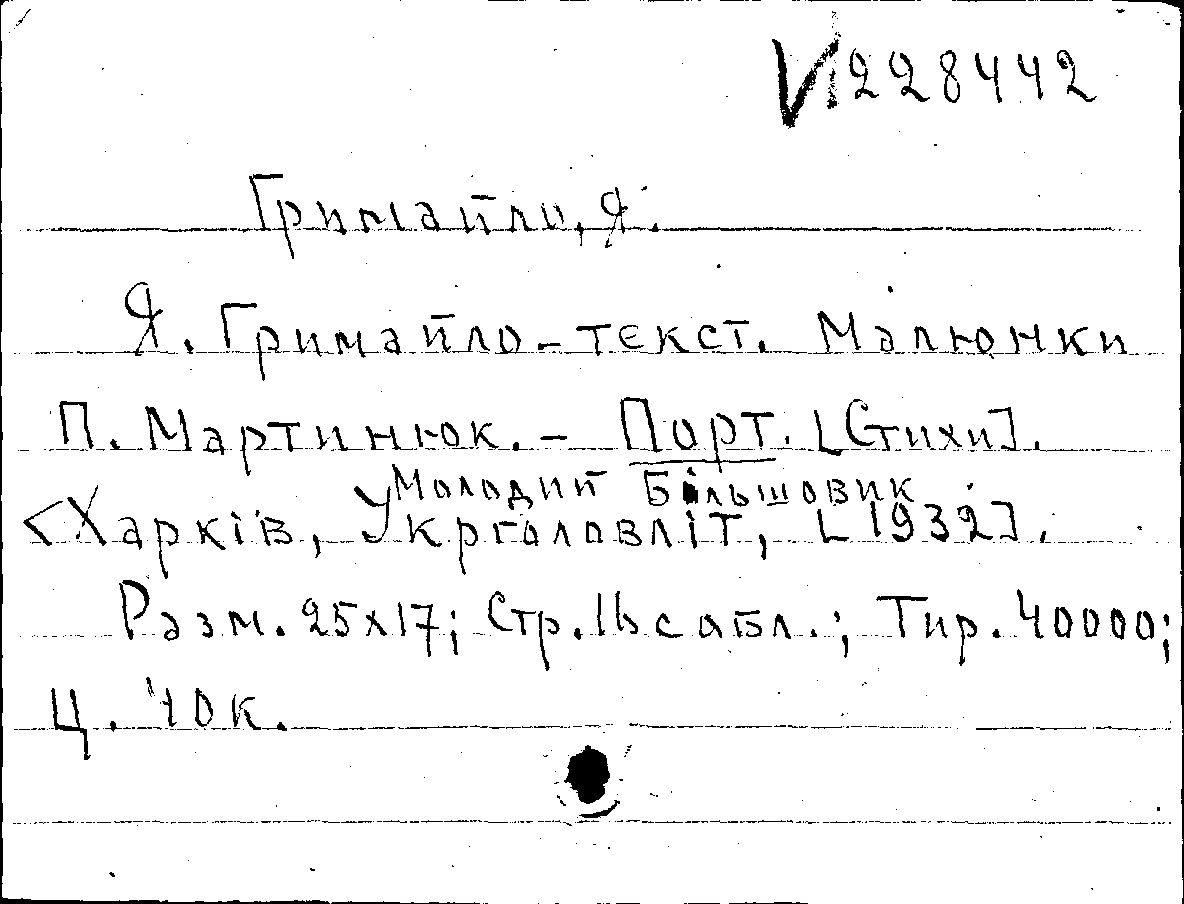 И228442
Гримайло, Я.
Я. Гримайло-текст. Малюнки
П. Мартинюк. - Порт. [Стихи].
Молодий Більшовик
<Харків, Укрголовліт, [1932].
Разм. 25х17; Стр. 16 с абл.; Тир. 40000;
Ц. 40к.